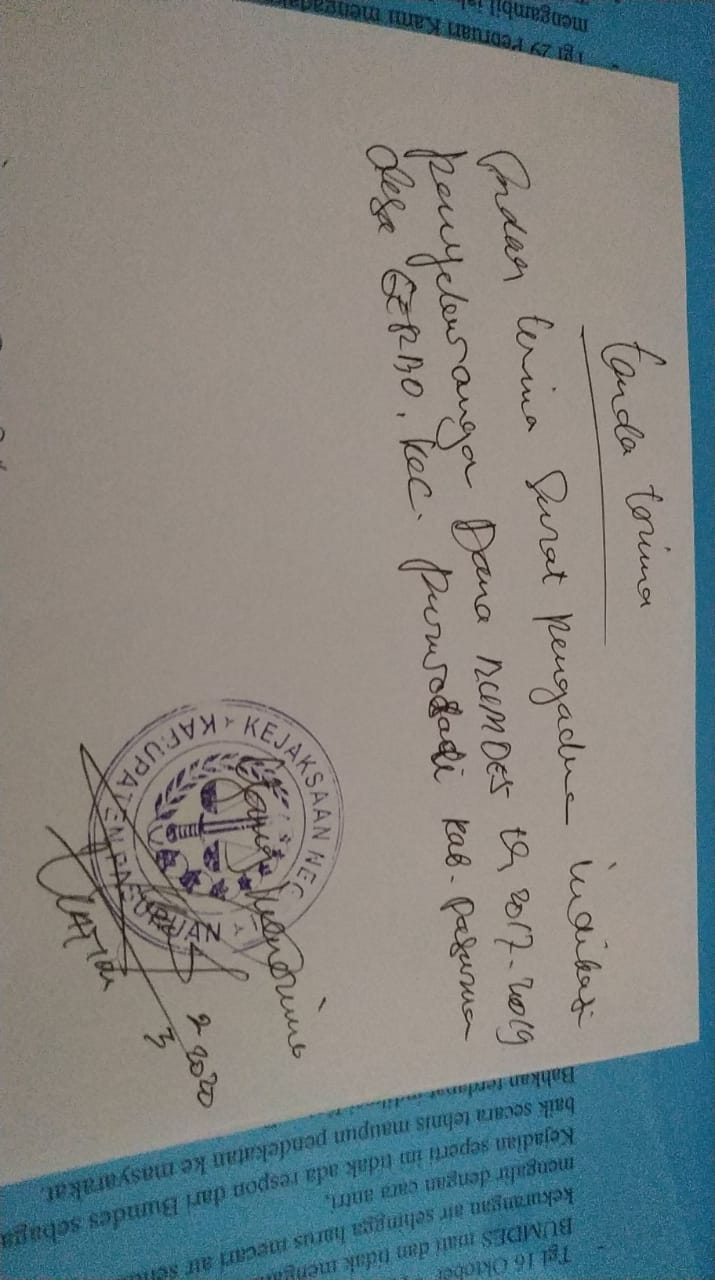 tanda terima
Sudah terima Surat pengadua indikasi
penyelewenga Dana BUMDES th 2017-2019
desa GERBO, kec. purwodadi kab. pasurua
yang menerima
KEJAKSAAN NEG
KABUPATEN PASURUAN
2 2020
3
mengambil
Tgl 29 Pebruari Kami mengadak
Tgl 16 Oktober
BUMDES mati dan tidak
kekurangan air sehingga harus mecari air
mengalir dengan cara antri.
Kejadian seperti im tidak ada respon dari Bumdes sebaga
baik secara tehnis maupun pendekatan ke masyarakat.
Bahkan terdapat